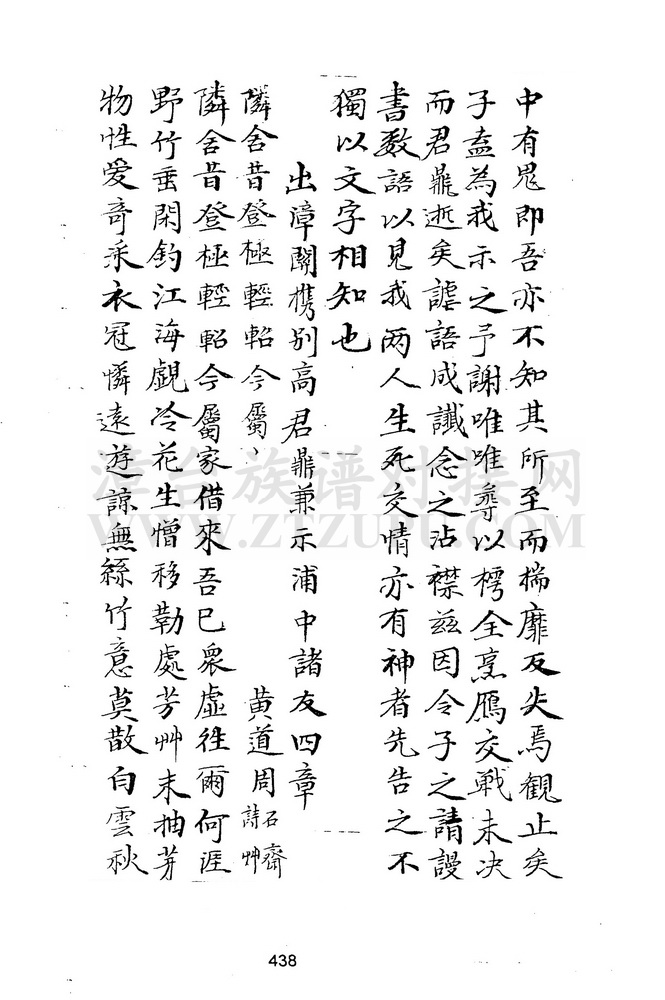 中有晁即吾亦不知其所至而揣靡反失焉觀止矣
子盍為我示之予謝唯唯尋以樗全烹鴈交戰未决
而君鼎逝矣謔語成讖念之沾襟兹因令子之請謾
書数語以見我两人生死交情亦有神者先告之不
獨以文字相知也
出漳關携别高君鼎兼示浦中諸友四章
隣舍昔登極輕軺今屬、 黄道周 石齋詩艸
隣舍昔登極輕軺今屬家借來吾已衆虛往爾何涯
野竹垂閑釣江海覷冷花生憎移勒處芳艸未抽芽
物性愛奇采衣冠憐遠遊諒無絲竹意莫散白雲秋
漳台族谱对接网
WWW.ZTZUPU.COM
438